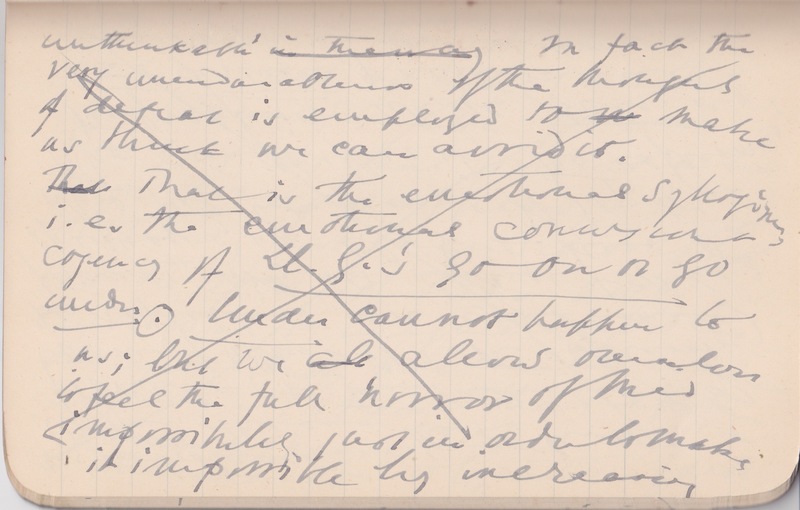 unthinkable' in the way In fact the
very unendurableness of the thought
of defeat is employed to make
us think we can avoid it.
That That is the emotional syllogism
i.e. the emotional
cogency of Ll. G.'s go on or go
under. Under cannot happen to
us; but we allow ourselves
to feel the full horror of this
impossibility just in order to make
it impossible by increasing